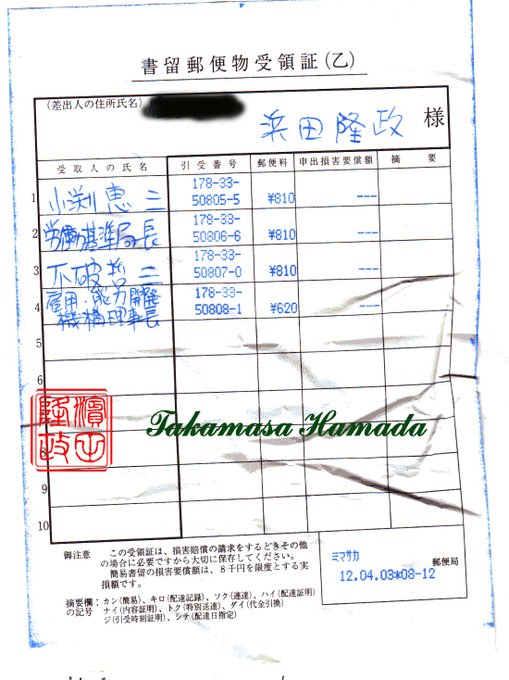 書留郵便物受領証(乙)
(差出人の住所氏名)
浜田隆政 様
受取人の氏名 引受番号 郵便料 申出損害要償額 摘要
1 小渕恵三 178-33-50805-5 ¥810 ---
2 労働基準局長 178-33-50806-6 ¥810 ---
3 不破哲三 178-33-50807-0 ¥810 ---
4 雇用・能力開発機構理事長 178-33-50808-1 ¥620 ---
5
6
濱田隆政
Takamasa Hamada
8
9
10
御注意 この受領証は、損害賠償の請求をするときその他
の場合に必要ですから大切に保存してください。
簡易書留の損害要償額は、8千円を限度とする実
損額です。
摘要欄:カン(簡易)、キロ(配達記録)、ソク(速達)、ハイ(配達証明)
の記号 ナイ(内容証明)、トク(特別送達)、ダイ(代金引換)
ジ(引受時刻証明)、シテ(配達日指定)
ミマサカ 郵便局
12.04.03*08-12